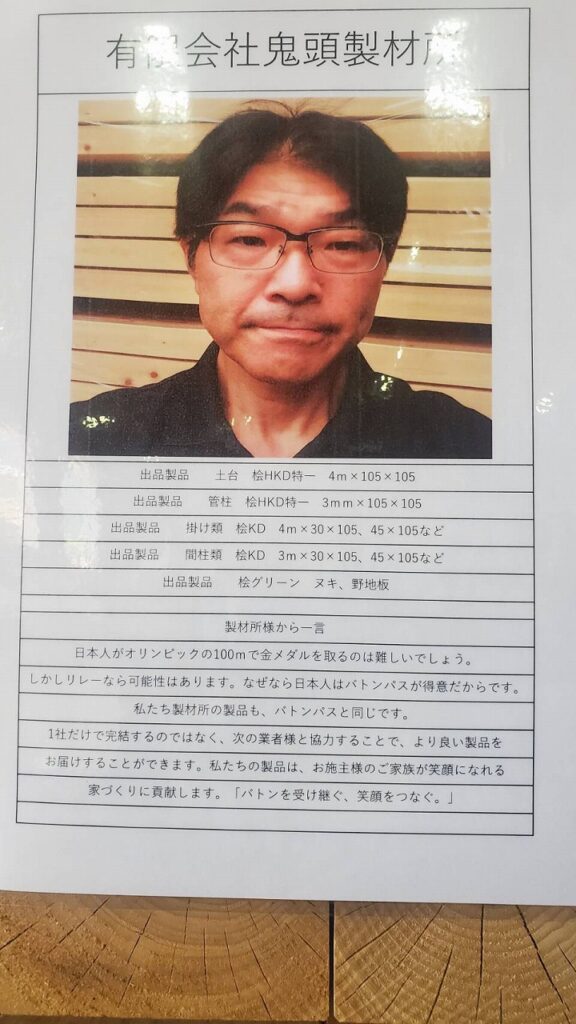 有限会社鬼頭製材所
出品製品　土台　桧HKD特一　4m×105×105
出品製品　管柱　桧HKD特一　3mm×105×105
出品製品　掛け類　桧KD　4m×30×105、45×105など
出品製品　間柱類　桧KD　3m×30×105、45×105など
出品製品　桧グリーン　ヌキ、野地板
製材所様から一言
日本人がオリンピックの100mで金メダルを取るのは難しいでしょう。
しかしリレーなら可能性はあります。なぜなら日本人はバトンパスが得意だからです。
私たち製材所の製品も、バトンパスと同じです。
1社だけで完結するのではなく、次の業者様と協力することで、より良い製品を
お届けすることができます。私たちの製品は、お施主様のご家族が笑顔になれる
家づくりに貢献します。「バトンを受け継ぐ、笑顔をつなぐ。」